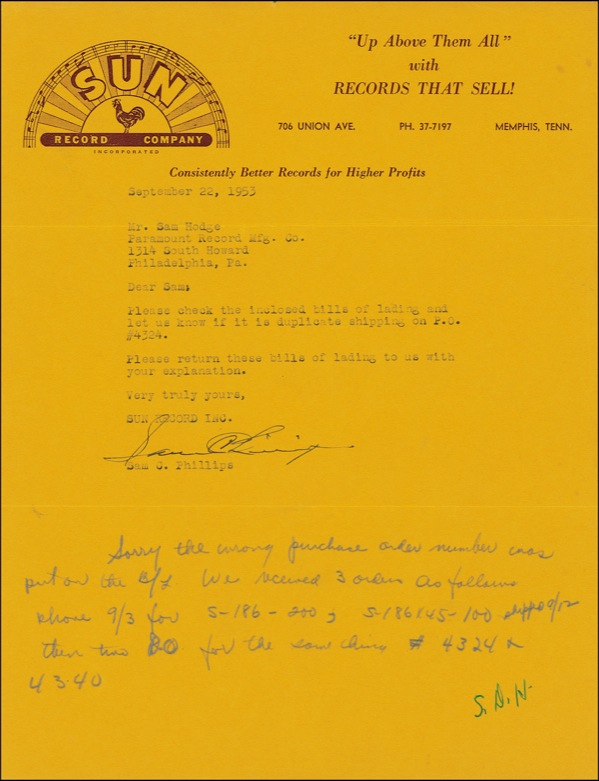 SUN
RECORD COMPANY
INCORPORATED
"Up Above Them All"
with
RECORDS THAT SELL!
706 UNION AVE. PH. 37-7197 MEMPHIS, TENN.
Consistently Better Records for Higher Profits
September 22, 1953
Mr. Sam Hodge
Paramount Record Mfg. Co.
1314 South Howard
Philadelphia, Pa.
Dear Sam:
Please check the inclosed bills of lading and
let us know if it is duplicate shipping on P.O.
#4324.
Please return these bills of lading to us with
your explanation.
Very truly yours,
SUN RECORD INC.
Sam C. Phillips
Sorry the wrong purchase order number was
put on the B/L. We received 3 orders as follows
phone 9/3 for S-186-200; S-186X45-100 9/12
then two for the same thing # 4324 &
4340
S.D.H.